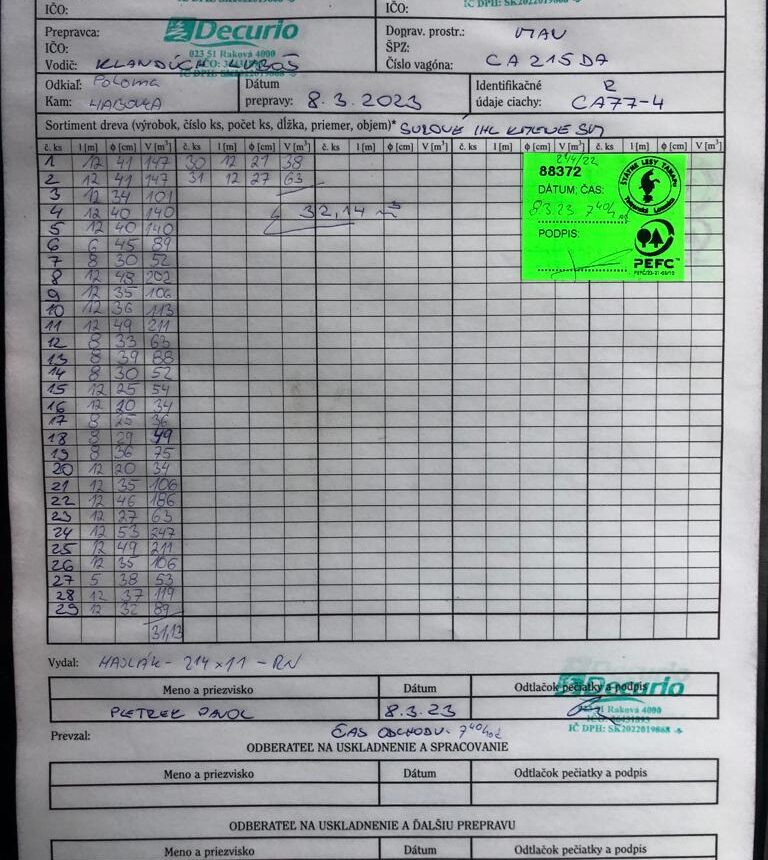 IČO: IČO:
Prepravca: Decurio Doprav. prostr.: MAN
IČO: 023 51 Raková 4000 ŠPZ:
Vodič: KLANDÚCH ĽUBOŠ Číslo vagóna: CA 215DA
Odkiaľ: Poloma Dátum Identifikačné R
Kam: HABOVKA prepravy: 8.3.2023 údaje ciachy: CA77-4
Sortiment dreva (výrobok, číslo ks, počet ks, dĺžka, priemer, objem)* SUROVÉ IHL KMENE SM
č. ks l [m] ϕ [cm] V [m³] č. ks l [m] ϕ [cm] V [m³] č. ks l [m] ϕ [cm] V [m³] č. ks l [m] ϕ [cm] V [m³] č. ks l [m] ϕ [cm] V [m³]
1 12 41 147 30 12 21 38
2 12 41 147 31 12 27 63
3 12 34 101
4 12 40 140 32,14 m³
5 12 40 140
6 6 45 89
7 8 30 52
8 12 48 202
9 12 35 106
10 12 36 113
11 12 49 211
12 8 33 63
13 8 39 88
14 8 30 52
15 12 25 54
16 12 20 34
17 8 25 36
18 8 29 49
19 8 36 75
20 12 20 34
21 12 35 106
22 12 46 186
23 12 27 63
24 12 53 247
25 12 49 211
26 12 35 106
27 5 38 53
28 12 37 119
29 12 32 89
31,13
214/22
88372
DÁTUM, ČAS:
8.3.23 7⁴⁰h
PODPIS:
PEFC
Vydal: HAJLÁK - 214x11 - RN
Meno a priezvisko Dátum Odtlačok pečiatky a podpis
PLETREK PAVOL 8.3.23
Decurio
023 51 Raková 4000
IČ DPH: SK2022019868
Prevzal: ČAS ODCHODU: 7⁴⁰hod
ODBERATEĽ NA USKLADNENIE A SPRACOVANIE
Meno a priezvisko Dátum Odtlačok pečiatky a podpis
ODBERATEĽ NA USKLADNENIE A ĎALŠIU PREPRAVU
Meno a priezvisko Dátum Odtlačok pečiatky a podpis